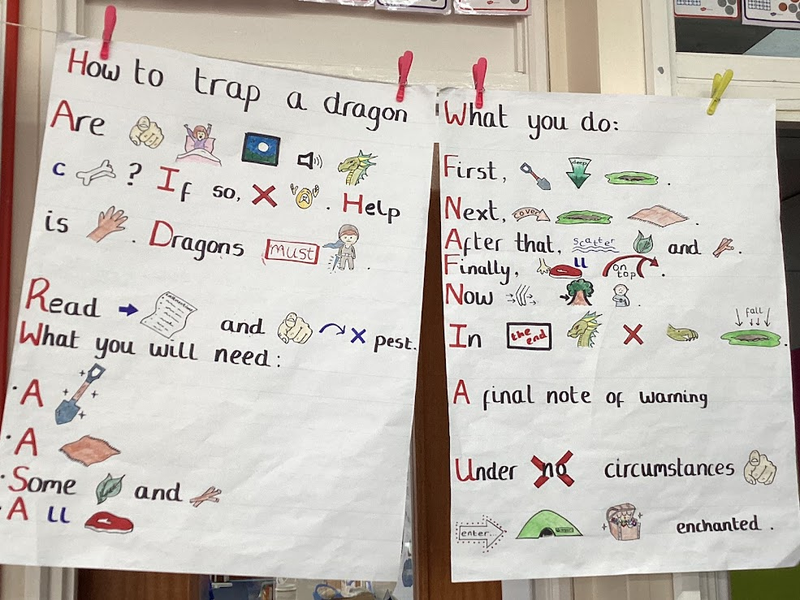 How to trap a dragon
Are
c ? If so, . Help
is . Dragons must .
Read and x pest.
What you will need:
· A
· A
· Some and
· A LL
What you do:
First, .
Next, cover .
After that, scatter and .
Finally, LL on top .
Now .
In the end fall .
A final note of warning
Under no circumstances
enter... enchanted .